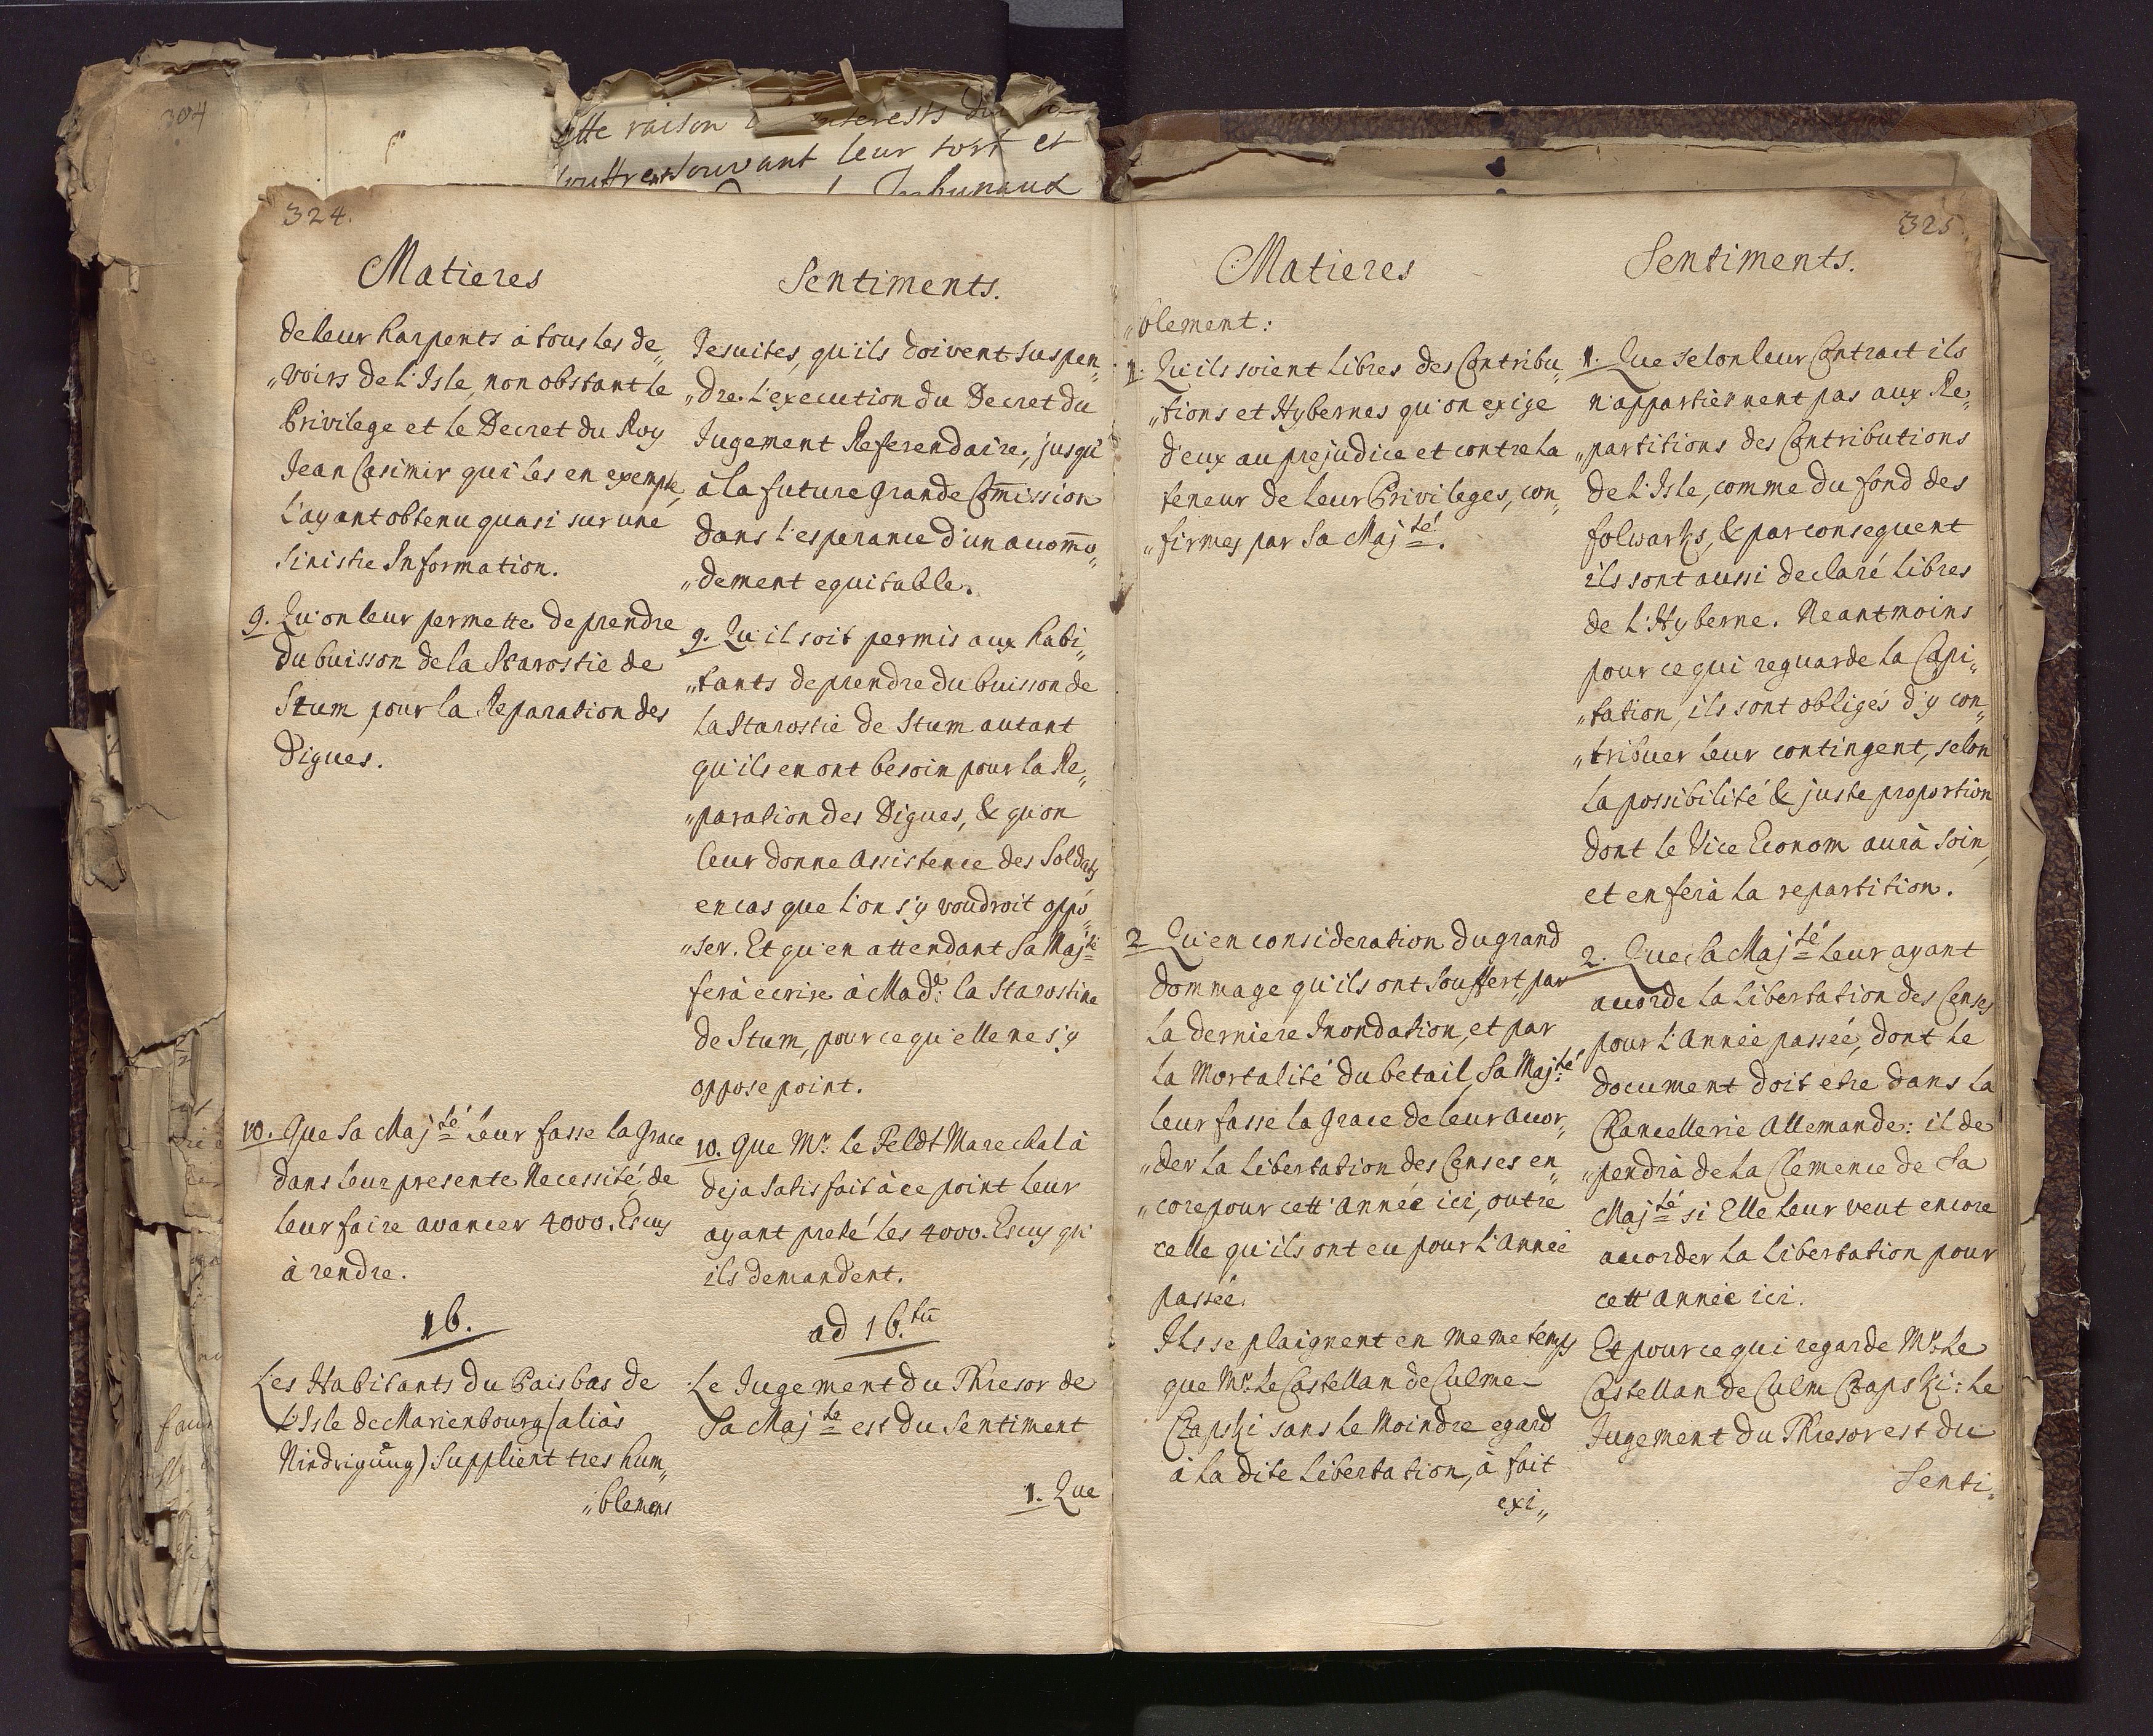 304
cette raison
souffrent souvant leur tort et
324.
Matieres
de leur harpents à tous les de„
„voirs de l'Isle, non obstant le
Privilege et le Decret du Roy
Jean Casimir qui les en exempte,
l'ayant obtenu quasi sur une
sinistre Information.
9. Qu'on leur permette de prendre
du buisson de la Starostie de
Stum pour la Reparation des
Digues.
10. Que Sa Maj.té leur fasse la Grace
dans leur presente Necessité de
leur faire avancer 4000. Escus
à rendre.
16.
Les Habitants du Pais bas de
l'Isle de Marienbourg (aliàs
Nindrigung) Supplient tres hum„
„blemens
Sentiments.
Jesuites, qu'ils doivent suspen„
„dre l'execution du Decret du
Jugement Referendaire, jusqu'
à la future grande Com̄ission
dans l'esperance d'un accom̄o„
„dement equitable.
9. Qu'il soit permis aux habi„
„tants de prendre du buisson de
la Starostie de Stum autant
qu'ils en ont besoin pour la Re„
„paration des Digues, & qu'on
leur donne Assistence des Soldats
en cas que l'on s'y voudroit oppo„
„ser. Et qu'en attendant Sa Maj.té
ferà ecrire à Mad.e la Starostine
de Stum, pour ce qu'elle ne s'y
oppose point.
10. Que Mr. le Feldt Marechal à
deja satisfait à ce point leur
ayant preté les 4000. Escus qu'
ils demandent.
ad 16.tū
Le Jugement du Thresor de
Sa Maj.té est du Sentiment
1. Que
325.
Matieres
„blement:
1. Qu'ils soient libres des Contribu„
„tions et Hybernes qu'on exige
d'eux au prejudice et contre la
teneur de leur Privileges, con„
„firmes par Sa Maj.té.
2 Qu'en consideration du grand
dommage qu'ils ont souffert par
la derniere Inondation, et par
la Mortalité du betail, Sa Maj.té
leur fasse la Grace de leur accor„
„der la libertation des Censes en„
„core pour cett' année ici, outre
celle qu'ils ont eu pour l'Année
passée.
Ils se plaignent en meme temps
que Mr. le Castellan de Culme
Czapski sans le moindre egard
à la dite libertation, à fait
exi„
Sentiments.
1. Que selon leur Contract ils
n'appartiennent pas aux Re„
„partitions des Contributions
de l'Isle, comme du fond des
folwarks, & par consequent
ils sont aussi declaré libres
de l'Hyberne. Neantmoins
pour ce qui reguarde la Capi„
„tation, ils sont obligés d'y con„
„tribuer leur contingent, selon
la possibilité & juste proportion
dont le Vice Econom aurà soin,
et en ferà la repartition.
2. Que Sa Maj.té leur ayant
accorde la libertation des Censes
pour l'Année passée, dont le
document doit etre dans la
Chancellerie Allemande: il de
„pendrà de la Clemence de Sa
Maj.té si Elle leur veut encore
accorder la libertation pour
cett' année ici.
Et pour ce qui regarde Mr. le
Castellan de Culm Czapski: le
Jugement du Thresor est du
Senti„